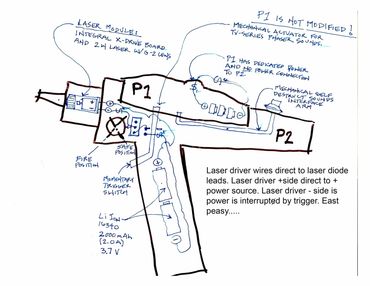 P1 IS NOT MODIFIED!
LASER MODULE:
INTEGRAL X-DRIVE BOARD
AND 2W LASER W/G-2 LENS
MECHANICAL ACTUATOR FOR
TV-SERIES PHASER SOUNDS...
P1 HAS DEDICATED POWER
AND NO POWER CONNECTION
TO P2
MECHANICAL SELF
DESTRUCT SOUNDS
INTERFACE
ARM
P1
P2
SAFE
POSITION
FIRE
POSITION
MOMENTARY
TRIGGER
SWITCH
Li Ion
16340
2000 mAh
(2.0A)
3.7 V
Laser driver wires direct to laser diode
leads. Laser driver +side direct to +
power source. Laser driver - side is
power is interrupted by trigger. East
peasy.....